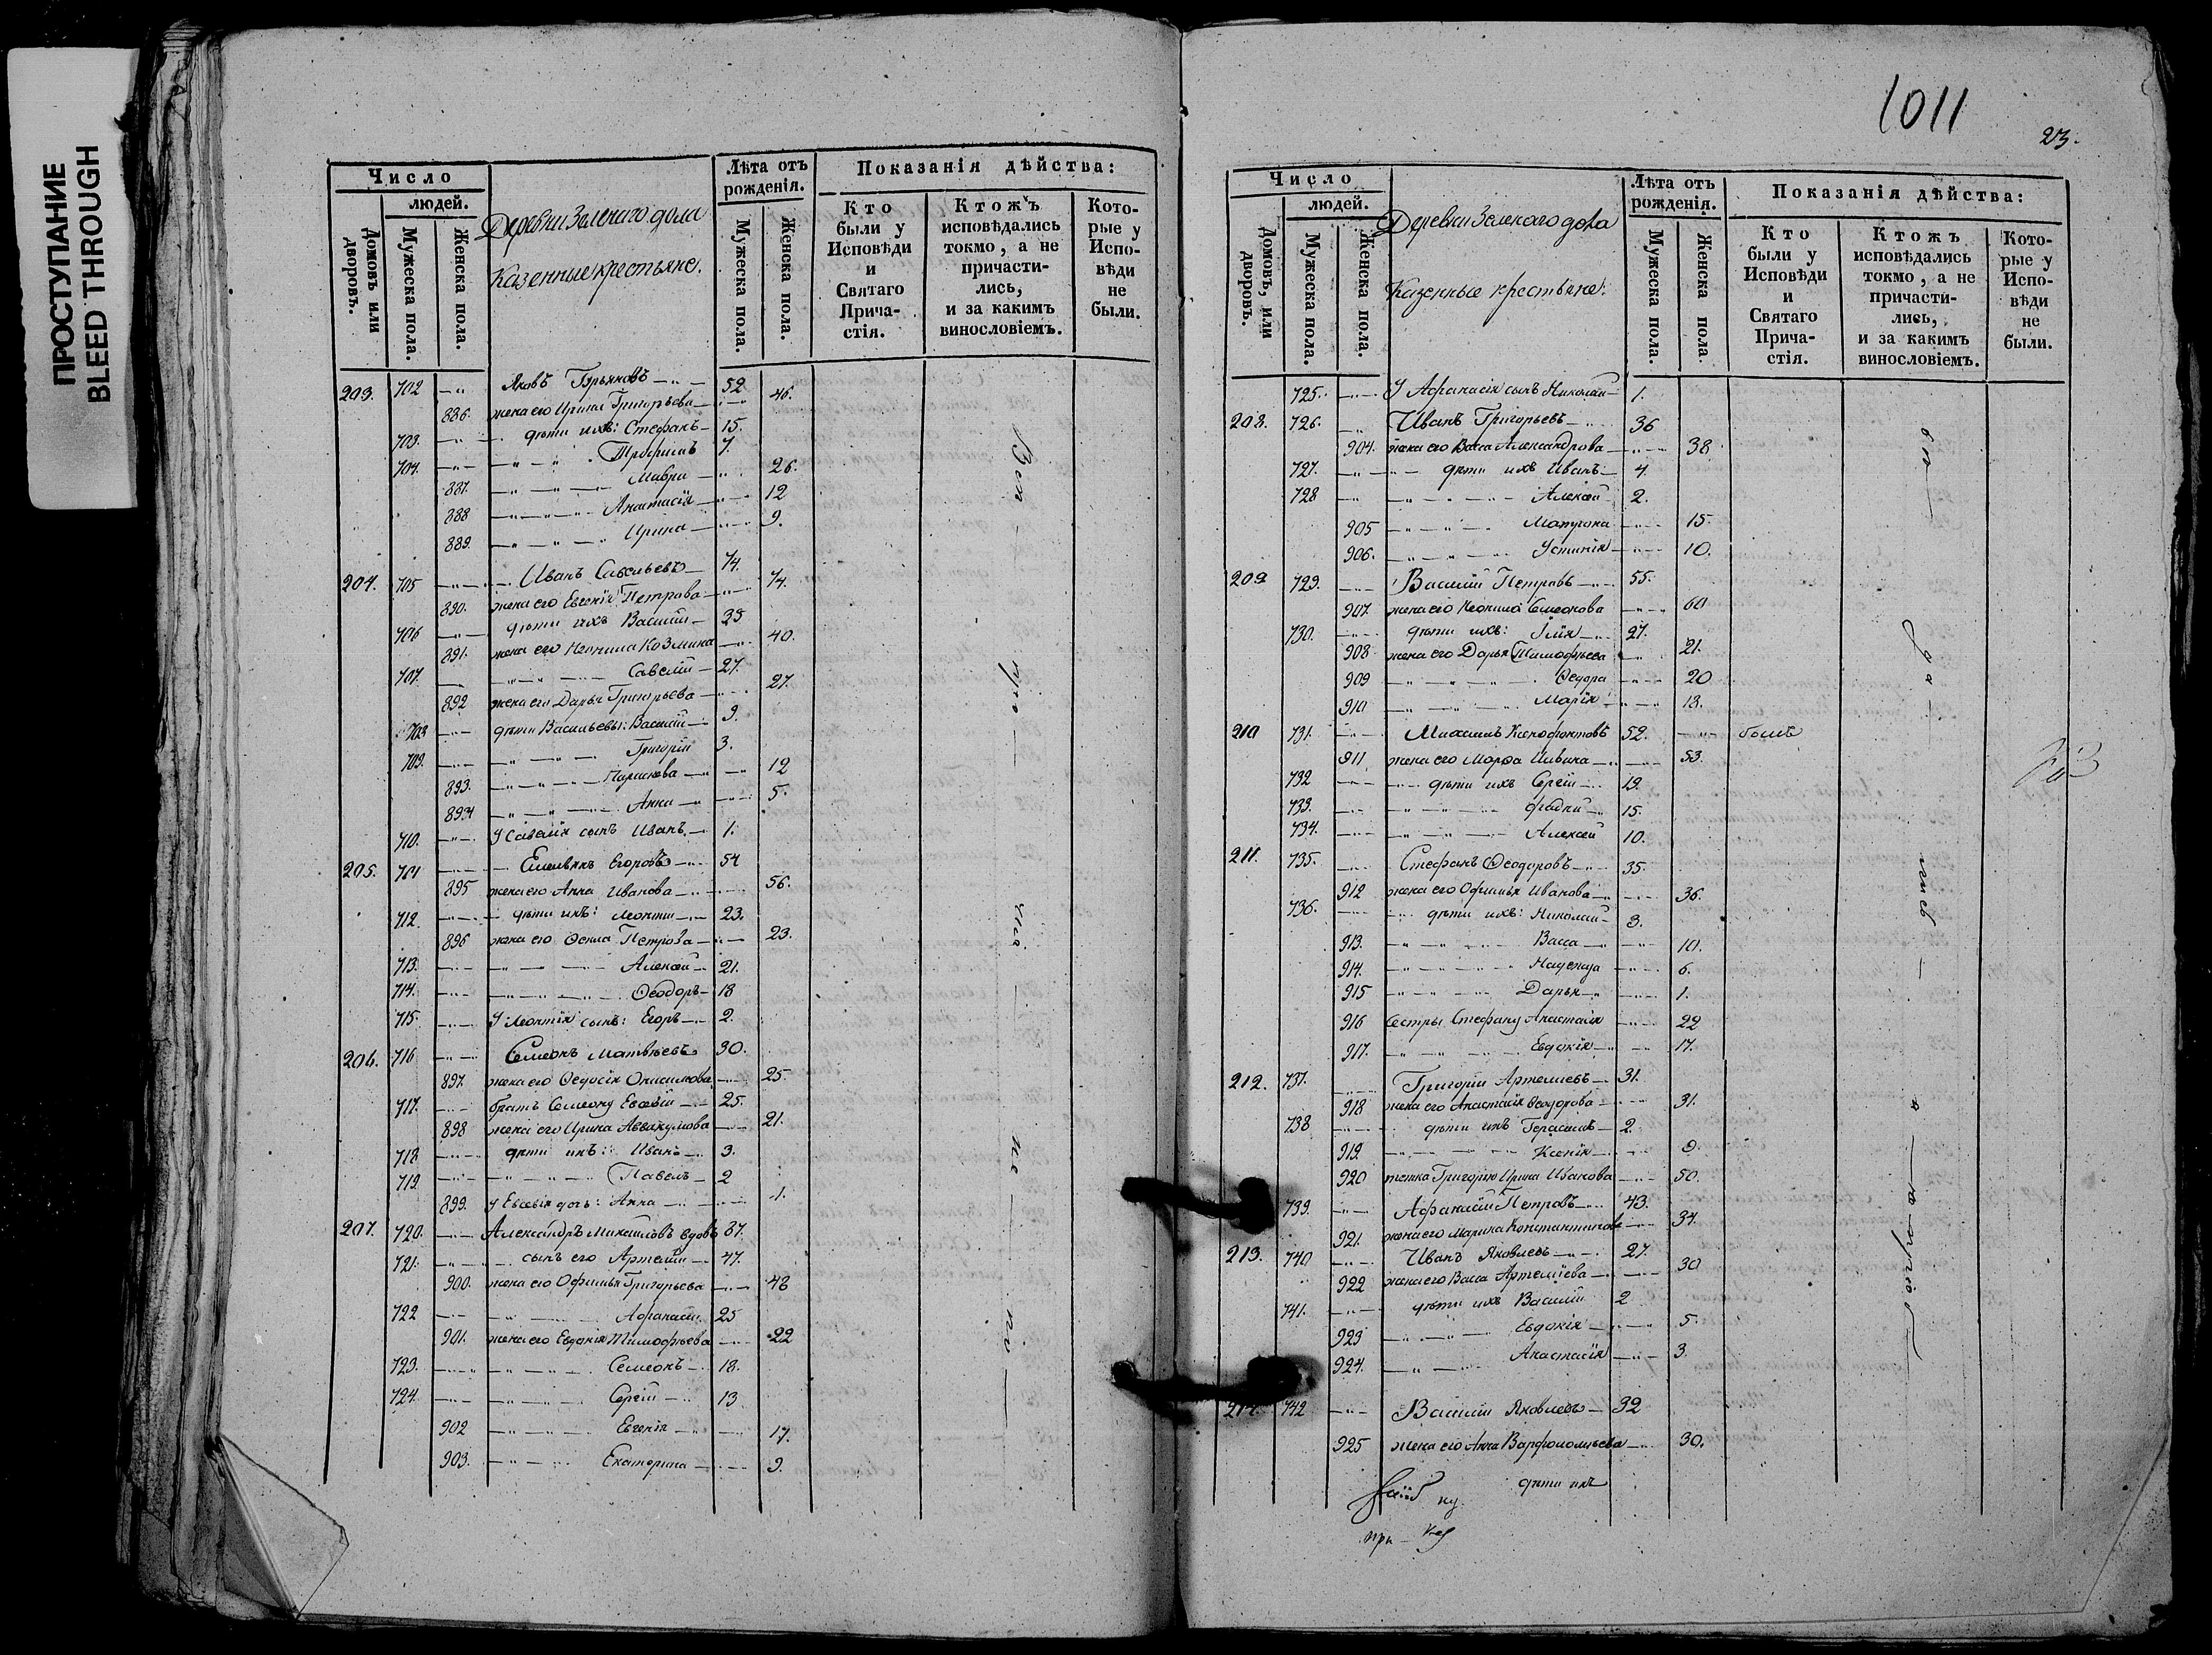 ПРОСТУПАНИЕ
BLEED THROUGH
Число
людей.
Домовъ или дворовъ.
Мужеска пола.
Женска пола.
Деревни Зеленаго дола
Казенные крестьяне.
Лѣта отъ рожденія.
Мужеска пола.
Женска пола.
Показанія дѣйства:
Кто были у Исповѣди и Святаго Прича-стія.
Ктожъ исповѣдались токмо, а не причасти-лись, и за какимъ винословіемъ.
Кото-рые у Испо-вѣди не были.
203. 702 Яковъ 52
886. жена его Ирина Григорьева 46.
703. дѣти ихъ: Стефанъ 15.
704. Трофимъ 7.
887. Мавра 26.
888 Анастасія 12
889. Ирина 9.
204. 705 Иванъ Савельевъ 74.
890. жена его Евгенія Петрова 74.
706 дѣти ихъ Василій 35
891. жена его Неонила Козмина 40.
707. Савелій 27.
892 жена его Дарья Григорьева 27.
708 дѣти Васильевы: Василій 9.
709. Григорій 3.
893. 12
894 Анна 5.
710. У Савелія сынъ Иванъ 1.
205. 711 Емельянъ Егоровъ 54
895 жена его Анна Иванова 56.
712 дѣти ихъ: Леонтій 23.
896 жена его Петрова 23.
713. Алексѣй 21.
714. Ѳеодоръ 18
715 У Леонтія сынъ: Егоръ 2.
206. 716 Семеонъ Матвѣевъ 30.
897. жена его Ѳедосія Онисимова 25.
717. братъ Семеону Евсевій 25.
898 жена его Ирина Аввакумова 21.
718 дѣти ихъ: Иванъ 3.
719 Павелъ 2
899. У Евсевія дочь: Анна 1.
207. 720. Александръ Михайловъ вдовъ 87.
721. сынъ его Артемій 47.
900. жена его Офимья Григорьева 48
722 Афанасій 25
901. жена его Евдокія Тимофѣева 22
723. Семеонъ 18.
724. Сергій 13
902 Евгенія 17.
903. Екатерина 9.
1011
23.
Число
людей.
Домовъ, или дворовъ.
Мужеска пола.
Женска пола.
Деревни Зеленаго дола
Казенные крестьяне.
Лѣта отъ рожденія.
Мужеска пола.
Женска пола.
Показанія дѣйства:
Кто были у Исповѣди и Святаго Прича-стія.
Ктожъ исповѣдались токмо, а не причасти-лись, и за какимъ винословіемъ.
Кото-рые у Испо-вѣди не были.
725. У Афанасія сынъ Николай 1.
208. 726. Иванъ Григорьевъ 36
904. жена его Васса Александрова 38
727. дѣти ихъ Иванъ 4.
728 Алексѣй 2.
905 Матрона 15.
906. Устинія 10.
209 729. Василій Петровъ 55.
907 жена его Неонила Семеонова 60
730. дѣти ихъ: Илія 27.
908 жена его Дарья Тимофѣева 21.
909 Ѳедора 20
910 Марія 18.
210 731. Михаилъ Ксенофонтовъ 52. былъ
911 жена его Марфа Ильина 53.
732 дѣти ихъ Сергій 19.
733. 15.
734. Алексѣй 10.
211. 735. Стефанъ Ѳеодоровъ 35.
912 жена его Офимья Иванова 36.
736. дѣти ихъ: Николай 3.
913. Васса 10.
914. Надежда 6.
915 Дарья 1.
916 Сестры Стефану Анастасія 22
917. Евдокія 17.
212. 737. Григорій Артемьевъ 31.
918 жена его Анастасія Ѳеодорова 31.
738 дѣти ихъ Герасимъ 2.
919 Ксенія 9.
920 тетка Григорію Ирина Иванова 50.
739. Афанасій Петровъ 43.
921. жена его Марина Константинова 34.
213. 740 Иванъ Яковлевъ 27.
922 жена его Васса Артемьева 30
741. дѣти ихъ Василій 2
923 Евдокія 5.
924. Анастасія 3.
214. 742 Василій Яковлевъ 32
925 жена его Анна Варфоломеева 30.
дѣти ихъ